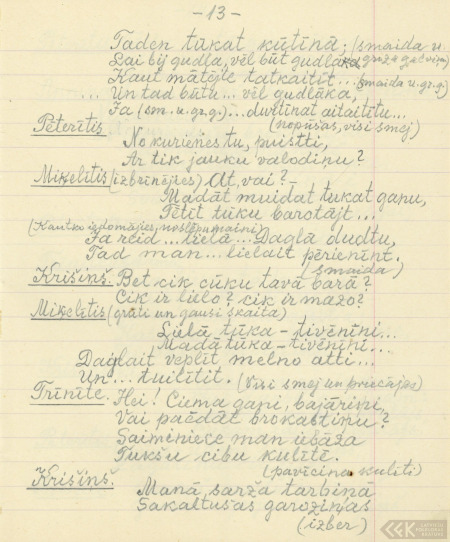 -13-
Taden tūkat kūtiņā; (smaida u.
Lai bij gudļa, vēl būt gudļaka, groza galviņu)
Kaut mātīte tatkaitīt... (smaida u. gr. g.)
.. Un tad būtu... vēl gudlūka,
Ja (sm. u. gr. g.)... durtīnat aitaitītu...
(nopūšas, visi smej)
Pēterītis
No kurienes tu, puisīti,
Ar tik jauku valodiņu?
Miķelītis (izbrīnējies) At, vai?
Madāt muidat tukat ganu,
Tētit tūku barotājt...
(Kautko izdomājies, noslēpumaini)
Ja reid... lielā... Daglā dudtu,
Tad man... lielait pērienīnt.
(smaida)
Krišiņš. Bet cik cūku tavā barā?
Cik ir lielo? cik ir mazo?
Miķelītis (grūti un gausi skaita)
Lielā tūka - tivēnīni...
Madā tūka - tivēnīni...
Daglait veplīt melno atti...
Un... tuilītit. (Visi smej un priecājas)
Trīnīte. Hei! Ciema gani, bajāriņi,
Vai paēdāt brokastiņu?
Saimniece man iebāza
Tukšu cibu kulītē.
(pavicina kulīti)
Krišiņš.
Manā sarža tarbiņā
Sakaltušas garoziņas
(izber)
LFK